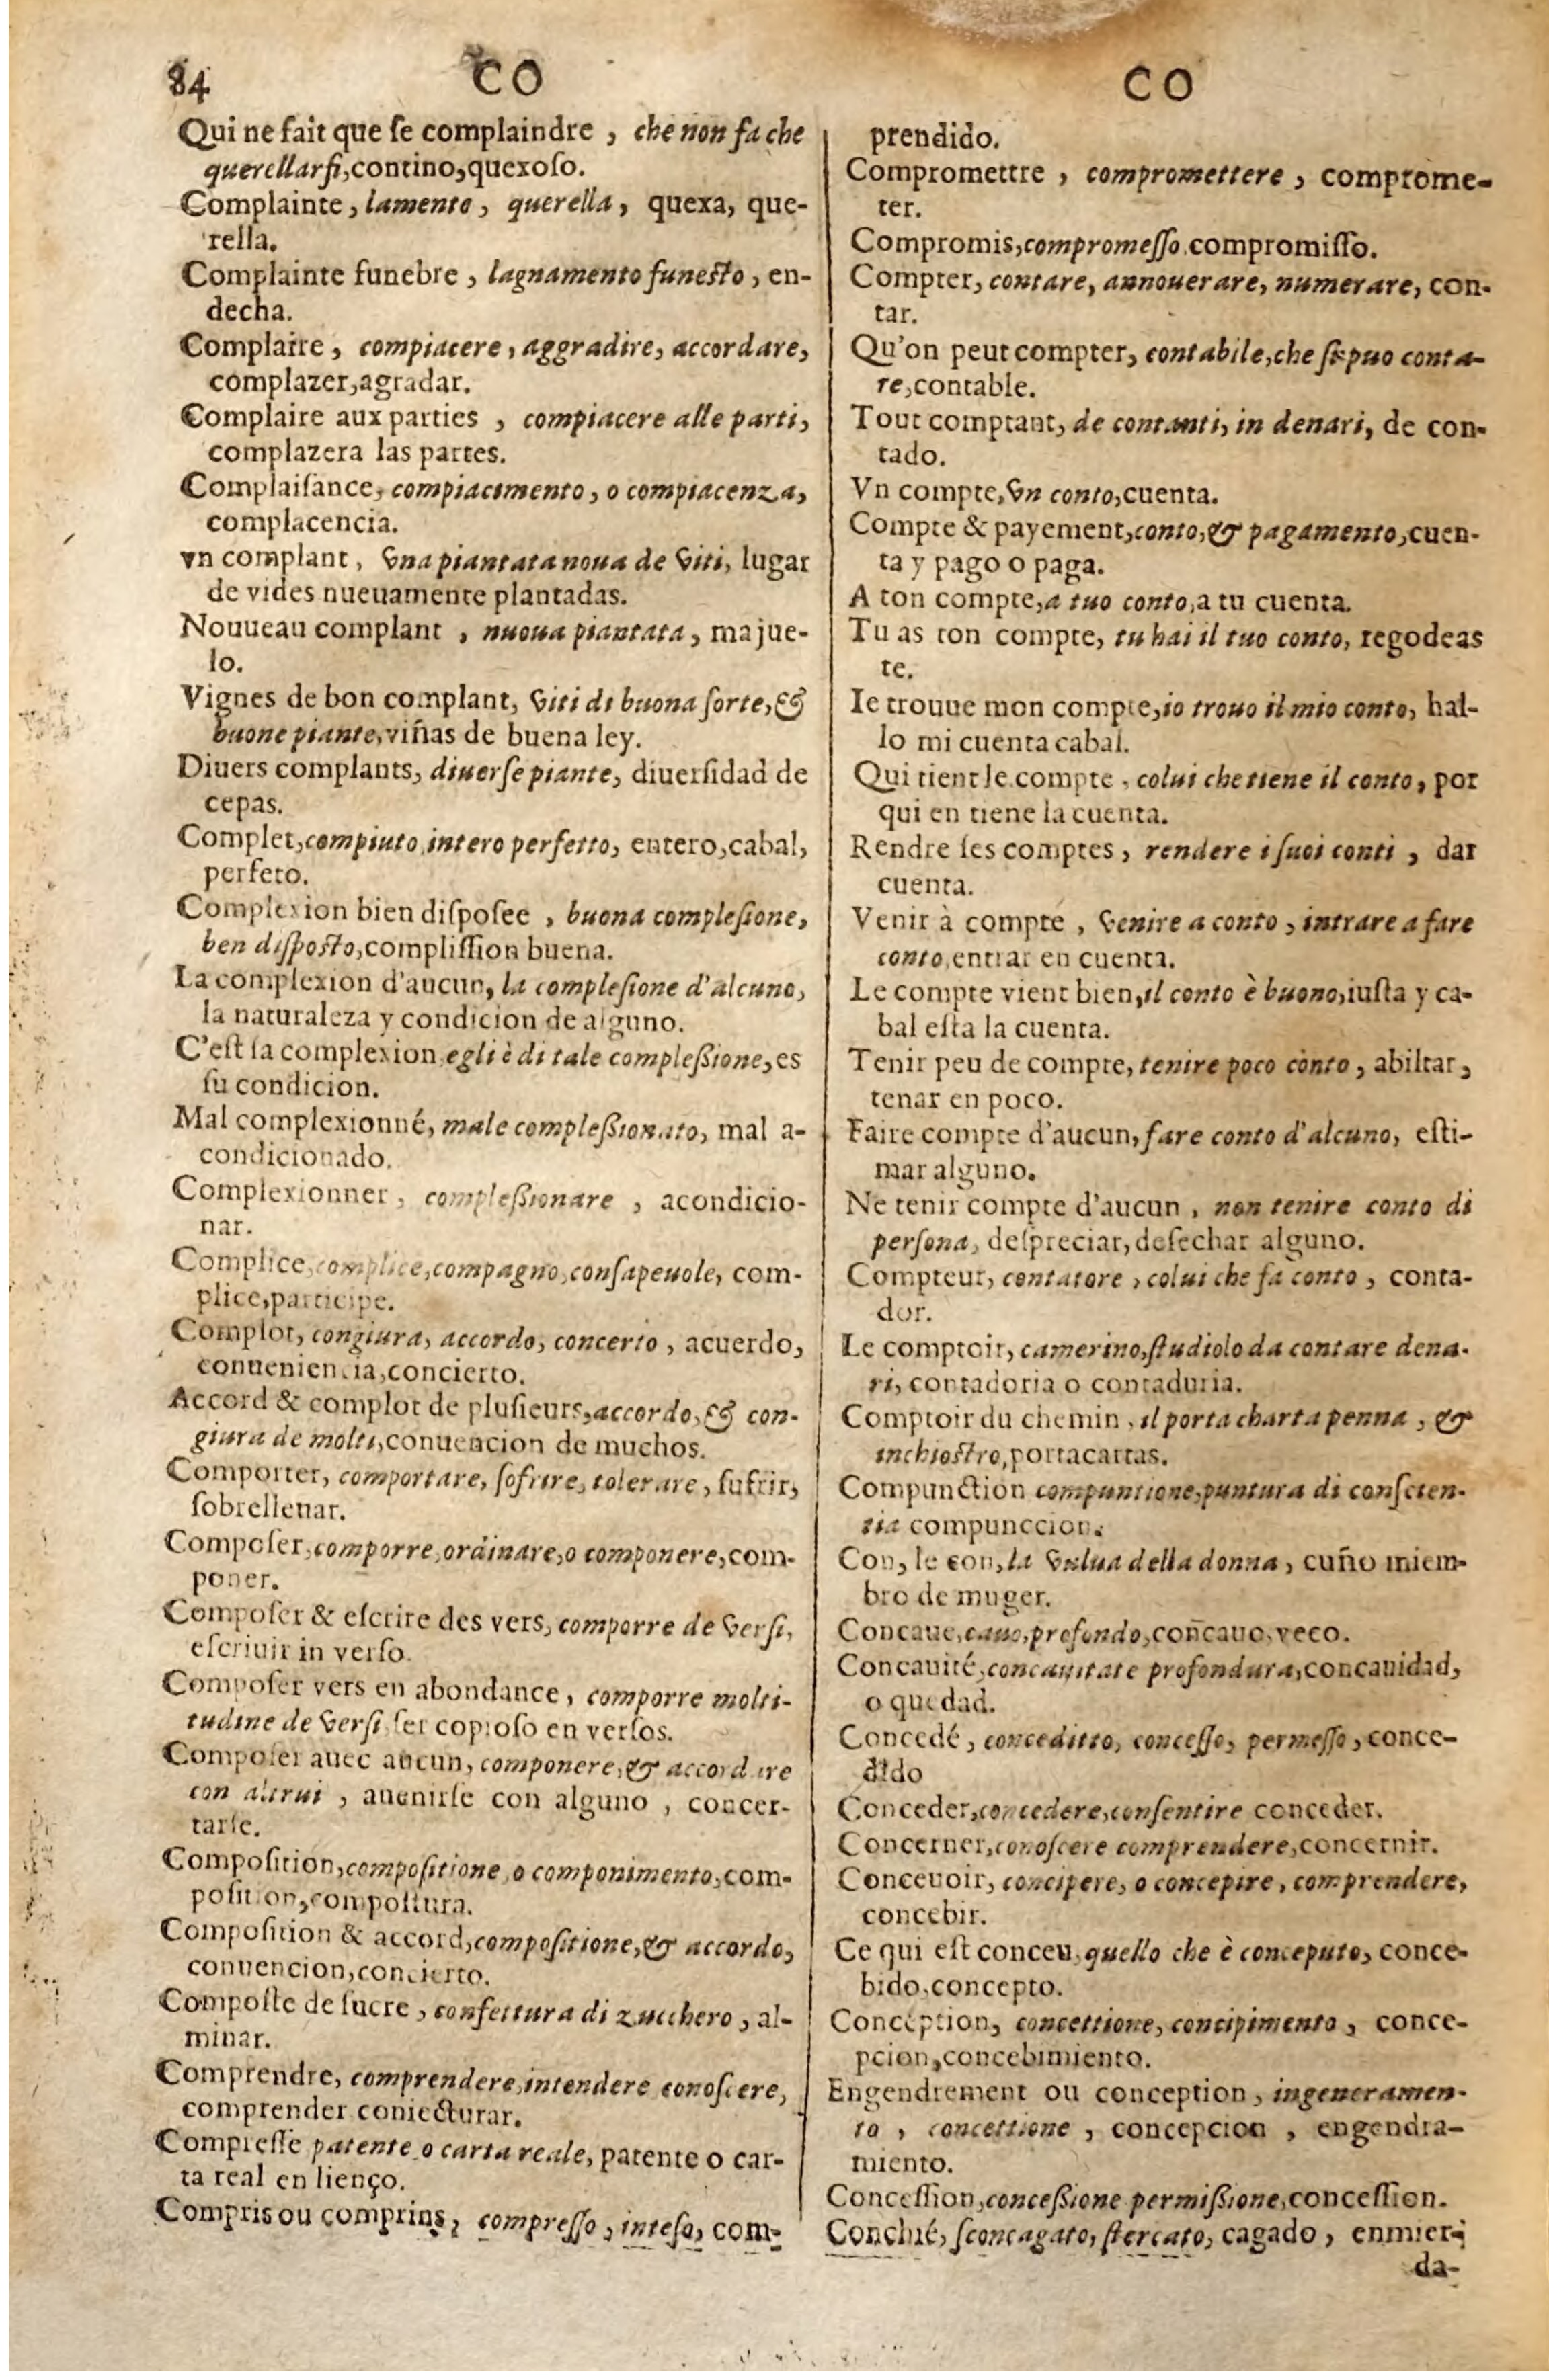 84 CO CO
Qui ne fait que ſe complaindre , che non fa che
querellarſi,contino,quexoſo.
Complainte, lamento, querella, quexa, que-
rella.
Complainte funebre , lagnamento funeſto , en-
decha.
Complaire , compiacere , aggradire, accordare,
complazer,agradar.
Complaire aux parties , compiacere alle parti,
complazera las partes.
Complaiſance, compiacimento, o compiacenza,
complacencia.
vn complant , vna piantata noua de viti, lugar
de vides nueuamente plantadas.
Nouueau complant , nuoua piantata, majue-
lo.
Vignes de bon complant, viti di buona ſorte,&
buone piante,viñas de buena ley.
Diuers complants, diuerſe piante, diuerſidad de
cepas.
Complet,compiuto,intero perfetto, entero,cabal,
perfeto.
Complexion bien diſpoſee , buona compleſione,
ben diſpoſto,compliſſion buena.
La complexion d'aucun, la compleſione d'alcuno,
la naturaleza y condicion de alguno.
C'eſt ſa complexion egli è di tale compleßione,es
ſu condicion.
Mal complexionné, male compleßionato, mal a-
condicionado.
Complexionner, compleßionare , acondicio-
nar.
Complice,complice,compagno,conſapeuole, com-
plice,participe.
Complot, congiura, accordo, concerto , acuerdo,
conueniencia,concierto.
Accord & complot de pluſieurs,accordo,& con-
giura de molti,conuencion de muchos.
Comporter, comportare, ſofrire, tolerare, ſufrir,
ſobrelleuar.
Compoſer,comporre,ordinare,o componere,com-
poner.
Compoſer & eſcrire des vers, comporre de verſi,
eſcriuir in verſo.
Compoſer vers en abondance , comporre molti-
tudine de verſi ſer copioſo en verſos.
Compoſer auec aucun, componere,& accordare
con altrui , auenirſe con alguno , concer-
tarſe.
Compoſition,compoſitione,o componimento,com-
poſition,compoſtura.
Compoſition & accord,compoſitione,& accordo,
conuencion,concierto.
Compoſte de ſucre , confettura di zucchero , al-
minar.
Comprendre, comprendere,intendere conoſcere,
comprender coniecturar.
Compreſſe patente o carta reale, patente o car-
ta real en lienço.
Compris ou comprins, compreſſo , inteſo, com-
prendido.
Compromettre , compromettere , comprome-
ter.
Compromis,compromeſſo compromiſſo.
Compter, contare, annouerare, numerare, con-
tar.
Qu'on peut compter, contabile,che ſi puo conta-
re,contable.
Tout comptant, de contanti, in denari, de con-
tado.
Vn compte,vn conto,cuenta.
Compte & payement,conto,& pagamento,cuen-
ta y pago o paga.
A ton compte,a tuo conto,a tu cuenta.
Tu as ton compte, tu hai il tuo conto, regodeas
te.
Ie trouue mon compte,io trouo il mio conto, hal-
lo mi cuenta cabal.
Qui tient le compte , colui che tiene il conto, por
qui en tiene la cuenta.
Rendre ſes comptes , rendere i ſuoi conti , dar
cuenta.
Venir à compte , venire a conto , intrare a fare
conto,entrar en cuenta.
Le compte vient bien,il conto è buono,iuſta y ca-
bal eſta la cuenta.
Tenir peu de compte, tenire poco conto , abiltar,
tenar en poco.
Faire compte d'aucun, fare conto d'alcuno, eſti-
mar alguno.
Ne tenir compte d'aucun , non tenire conto di
perſona, deſpreciar,deſechar alguno.
Compteur, contatore , colui che fa conto , conta-
dor.
Le comptoir, camerino,ſtudiolo da contare dena-
ri, contadoria o contaduria.
Comptoir du chemin , il porta charta penna , &
inchioſtro,portacartas.
Compunction compuntione,puntura di conſcien-
tia compunccion.
Con, le con,la vulua della donna , cuño miem-
bro de muger.
Concaue,cauo,profondo,coñcauo,veco.
Concauité,concauitate profondura,concauidad,
o quedad.
Concedé , conceditto, conceſſo, permeſſo , conce-
dido
Conceder,concedere,conſentire conceder.
Concerner,conoſcere comprendere,concernir.
Conceuoir, concipere, o concepire , comprendere,
concebir.
Ce qui eſt conceu,quello che è conceputo, conce-
bido,concepto.
Conception, concettione, concipimento , conce-
pcion,concebimiento.
Engendrement ou conception , ingeneramen-
to , concettione , concepcion , engendra-
miento.
Conceſſion,conceßione permißione,conceſſion.
Conchié, ſconcagato, ſtercato, cagado , enmier-
da-